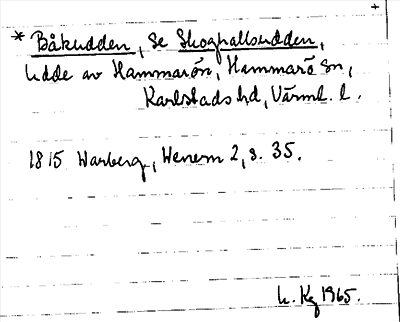 +
* Båkudden, se Skoghallsudden,
Udde av Hammarön, Hammarö sn,
Karlstads hd, Värml. l.
1815 Warberg, Wenern 2, s. 35.
L. Kg 1965.